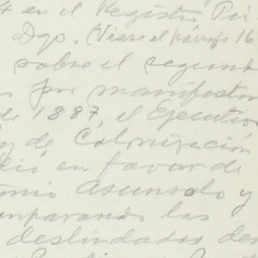 en el Registro Pú
Dgo. (Véase el párrafo 16
sobre el segund
por manifestar
de 1887, el Ejecutivo
y de Colonización
dió en favor de
onio Asunsolo y
mparando las
deslindadas den